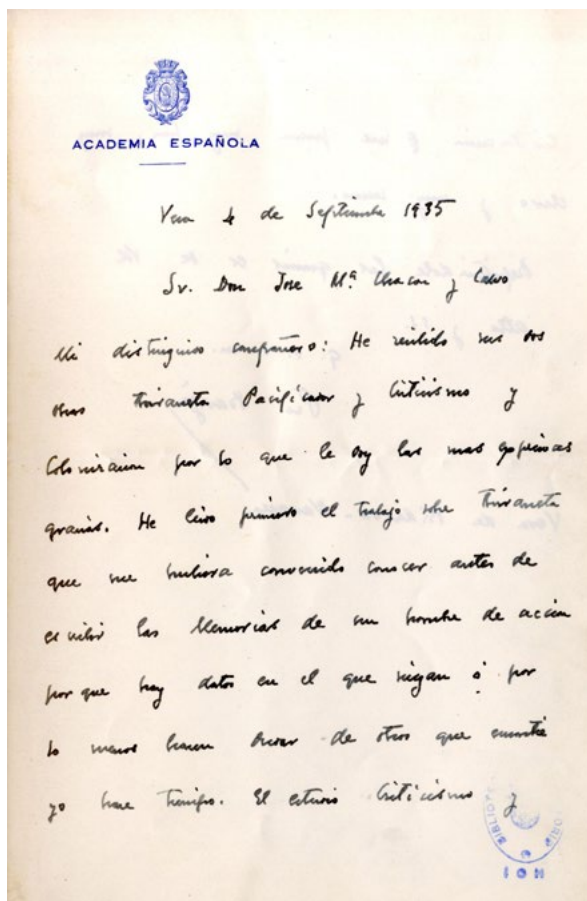 ACADEMIA ESPAÑOLA
Vera 4 de Septiembre 1935
Sr. Don Jose Mª Chacon y Calvo
Mi distinguido compañero: He recibido sus dos
obras Aviraneta Pacificador y Criticismo y
Colonizacion por lo que le doy las mas copiosas
gracias. He leido primero el trabajo sobre Aviraneta
que me hubiera convenido conocer antes de
escribir las Memorias de un hombre de accion
por que hay datos en el que niegan ó por
lo menos hacen dudar de otros que encontré
yo hace tiempo. El estudio Criticismo y